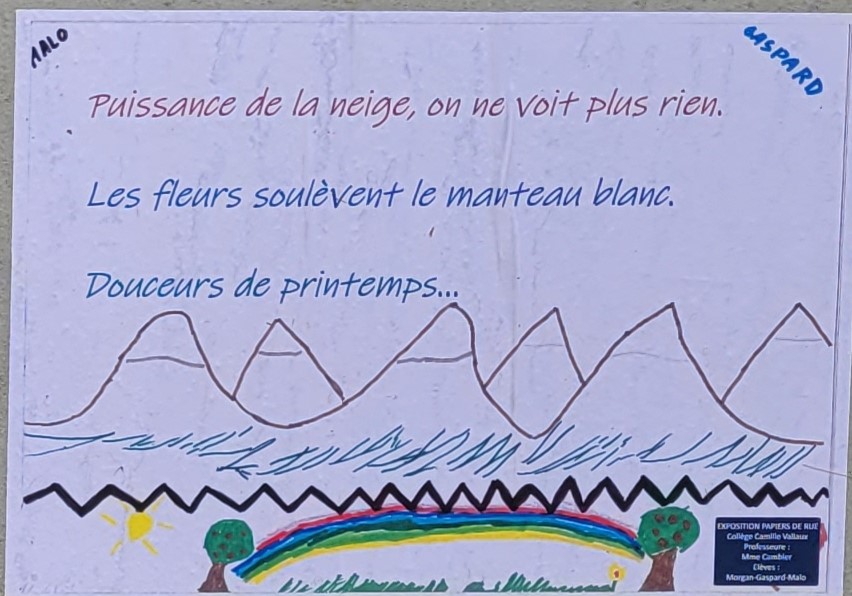 MALO
GASPARD
Puissance de la neige, on ne voit plus rien.
Les fleurs soulèvent le manteau blanc.
Douceurs de printemps...
EXPOSITION PAPIERS DE RUE
Collège Camille Vallaux
Professeure :
Mme Cambier
Élèves :
Morgan-Gaspard-Malo